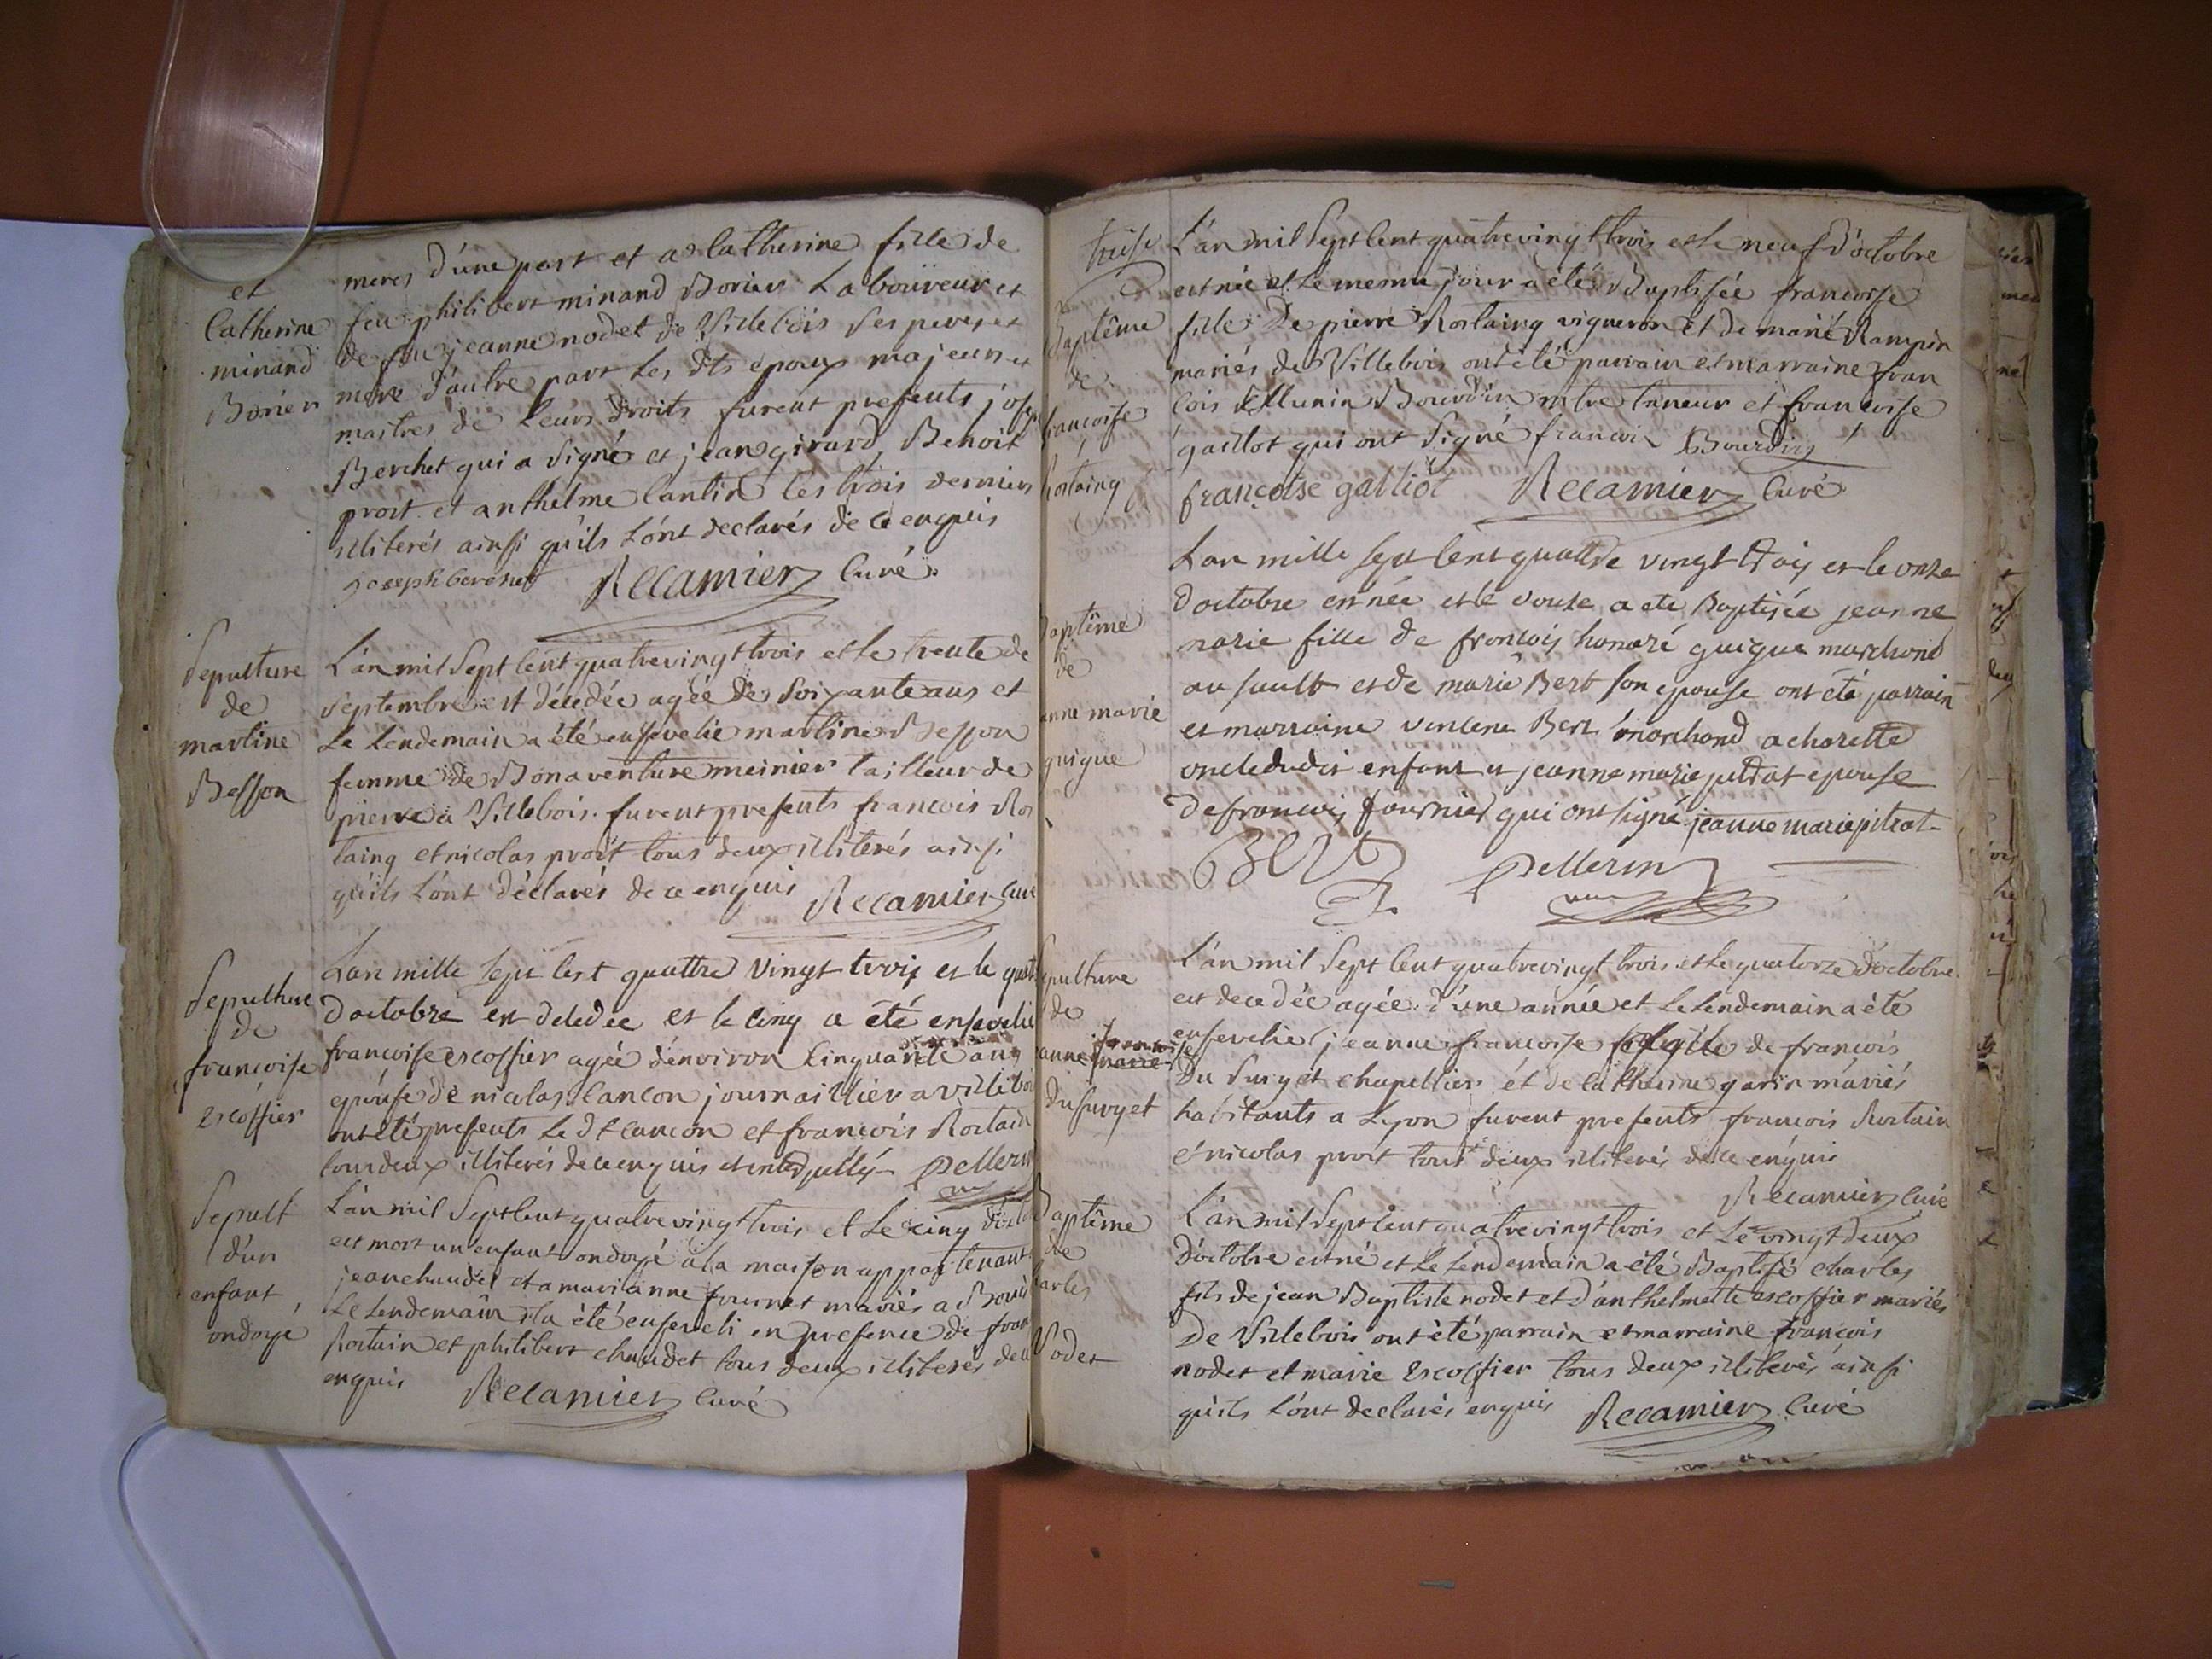 et
Catherine
minand
Borier
meres d'une part et a Catherine fille de
feu philibert minand Borier Laboureur et
de feu jeanne nodet de Villebois ses peres et
mere d'autre part les dts epoux majeurs et
maitres de leurs droits furent presents joseph
Berchet qui a signé et jean girard, Benoit
proit et anthelme Cantin les trois derniers
illiterés ainsi qu'ils l'ont declarés de ce enquis
joseph berchet Recamier Curé
Sepulture
de
martine
Besson
L'an mil Sept Cent quatrevingt trois et le trente de
septembre est décedée agée de soixante ans et
le lendemain a été ensevelie martine Besson
femme de Bonaventure meinier tailleur de
pierre a Villebois. furent presents francois Ros
taing et nicolas proit tous deux illiterés ainsi
qu'ils l'ont déclarés de ce enquis Recamier Curé
Sepulture
de
francoise
escoffier
Lan mille sept cent quattre vingt trois et le quatr
d'octobre est decedee et le cinq a été ensevelie
francoise escoffier agée d'environ cinquante ans
epouse de nicolas Cancon journaillier a villeboi
ont été presents le dt cancon et francois Rostain
tous deux illiterés de ce enquis et interpellés Pellerin
Sepult
d'un
enfant
ondoyé
L'an mil Sept Cent quatrevingt trois et le cinq d'octo
est mort un enfant ondoyé a la maison appartenant
jean chaudet et a marianne fournet mariés a Boui
le lendemain il a été enseveli en presence de fran
Rostain et philibert chaudet tous deux illiterés de ce
enquis Recamier Curé
Baptême
de
francoise
Rostaing
L'an mil Sept Cent quatrevingt trois et le neuf d'octobre
est née et le meme jour a été Baptisée francoise
fille De pierre Rostaing vigneron et de marie Rampin
mariés de Villebois ont été parrain et marraine fran
cois Bourdin mtre taneur et francoise
gaillot qui ont signé francois Bourdin
françoise galliot Recamier Curé
Baptême
de
anne marie
guigue
Lan mille sept cent quattre vingt trois et le onze
doctobre est née et le douze a ete Baptisée jeanne
marie fille de francois honoré guigue marchand
au sault et de marie Bert son epouse ont été parrain
et marraine vincent Bert marchand a charette
oncle dudit enfant et jeanne marie pitrat epouse
de francois fournier qui ont signé jeanne marie pitrat
Bert Pellerin
Sepulture
de
anne marie
francoise
du surget
L'an mil Sept Cent quatrevingt trois et le quatorze d'octobre
est decedée agée d'une année et le lendemain a été
ensevelie jeanne francoise fille de francois
Du Surget chapellier et de catherine garin mariés
habitants a Lyon furent presents francois Rostain
et nicolas proit tous deux illiterés de ce enquis
Recamier Curé
Baptême
de
Charles
Nodet
L'an mil Sept Cent quatrevingt trois et le vingt deux
d'octobre est né et le lendemain a été Baptisé charles
fils de jean Baptiste nodet et d'anthelmette escoffier mariés
De Villebois ont été parrain et marraine francois
nodet et marie escoffier tous deux illiterés ainsi
qu'ils l'ont declarés enquis Recamier Curé